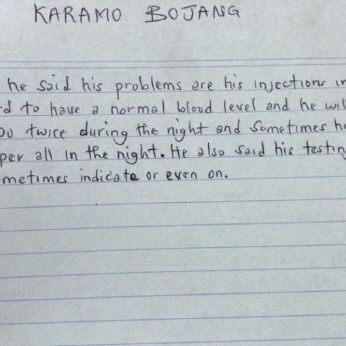 KARAMO BOJANG
he said his problems are his injections in
d to have a normal blood level and he wil
oo twice during the night and sometimes he
per all in the night. He also said his testing
metimes indicate or even on.